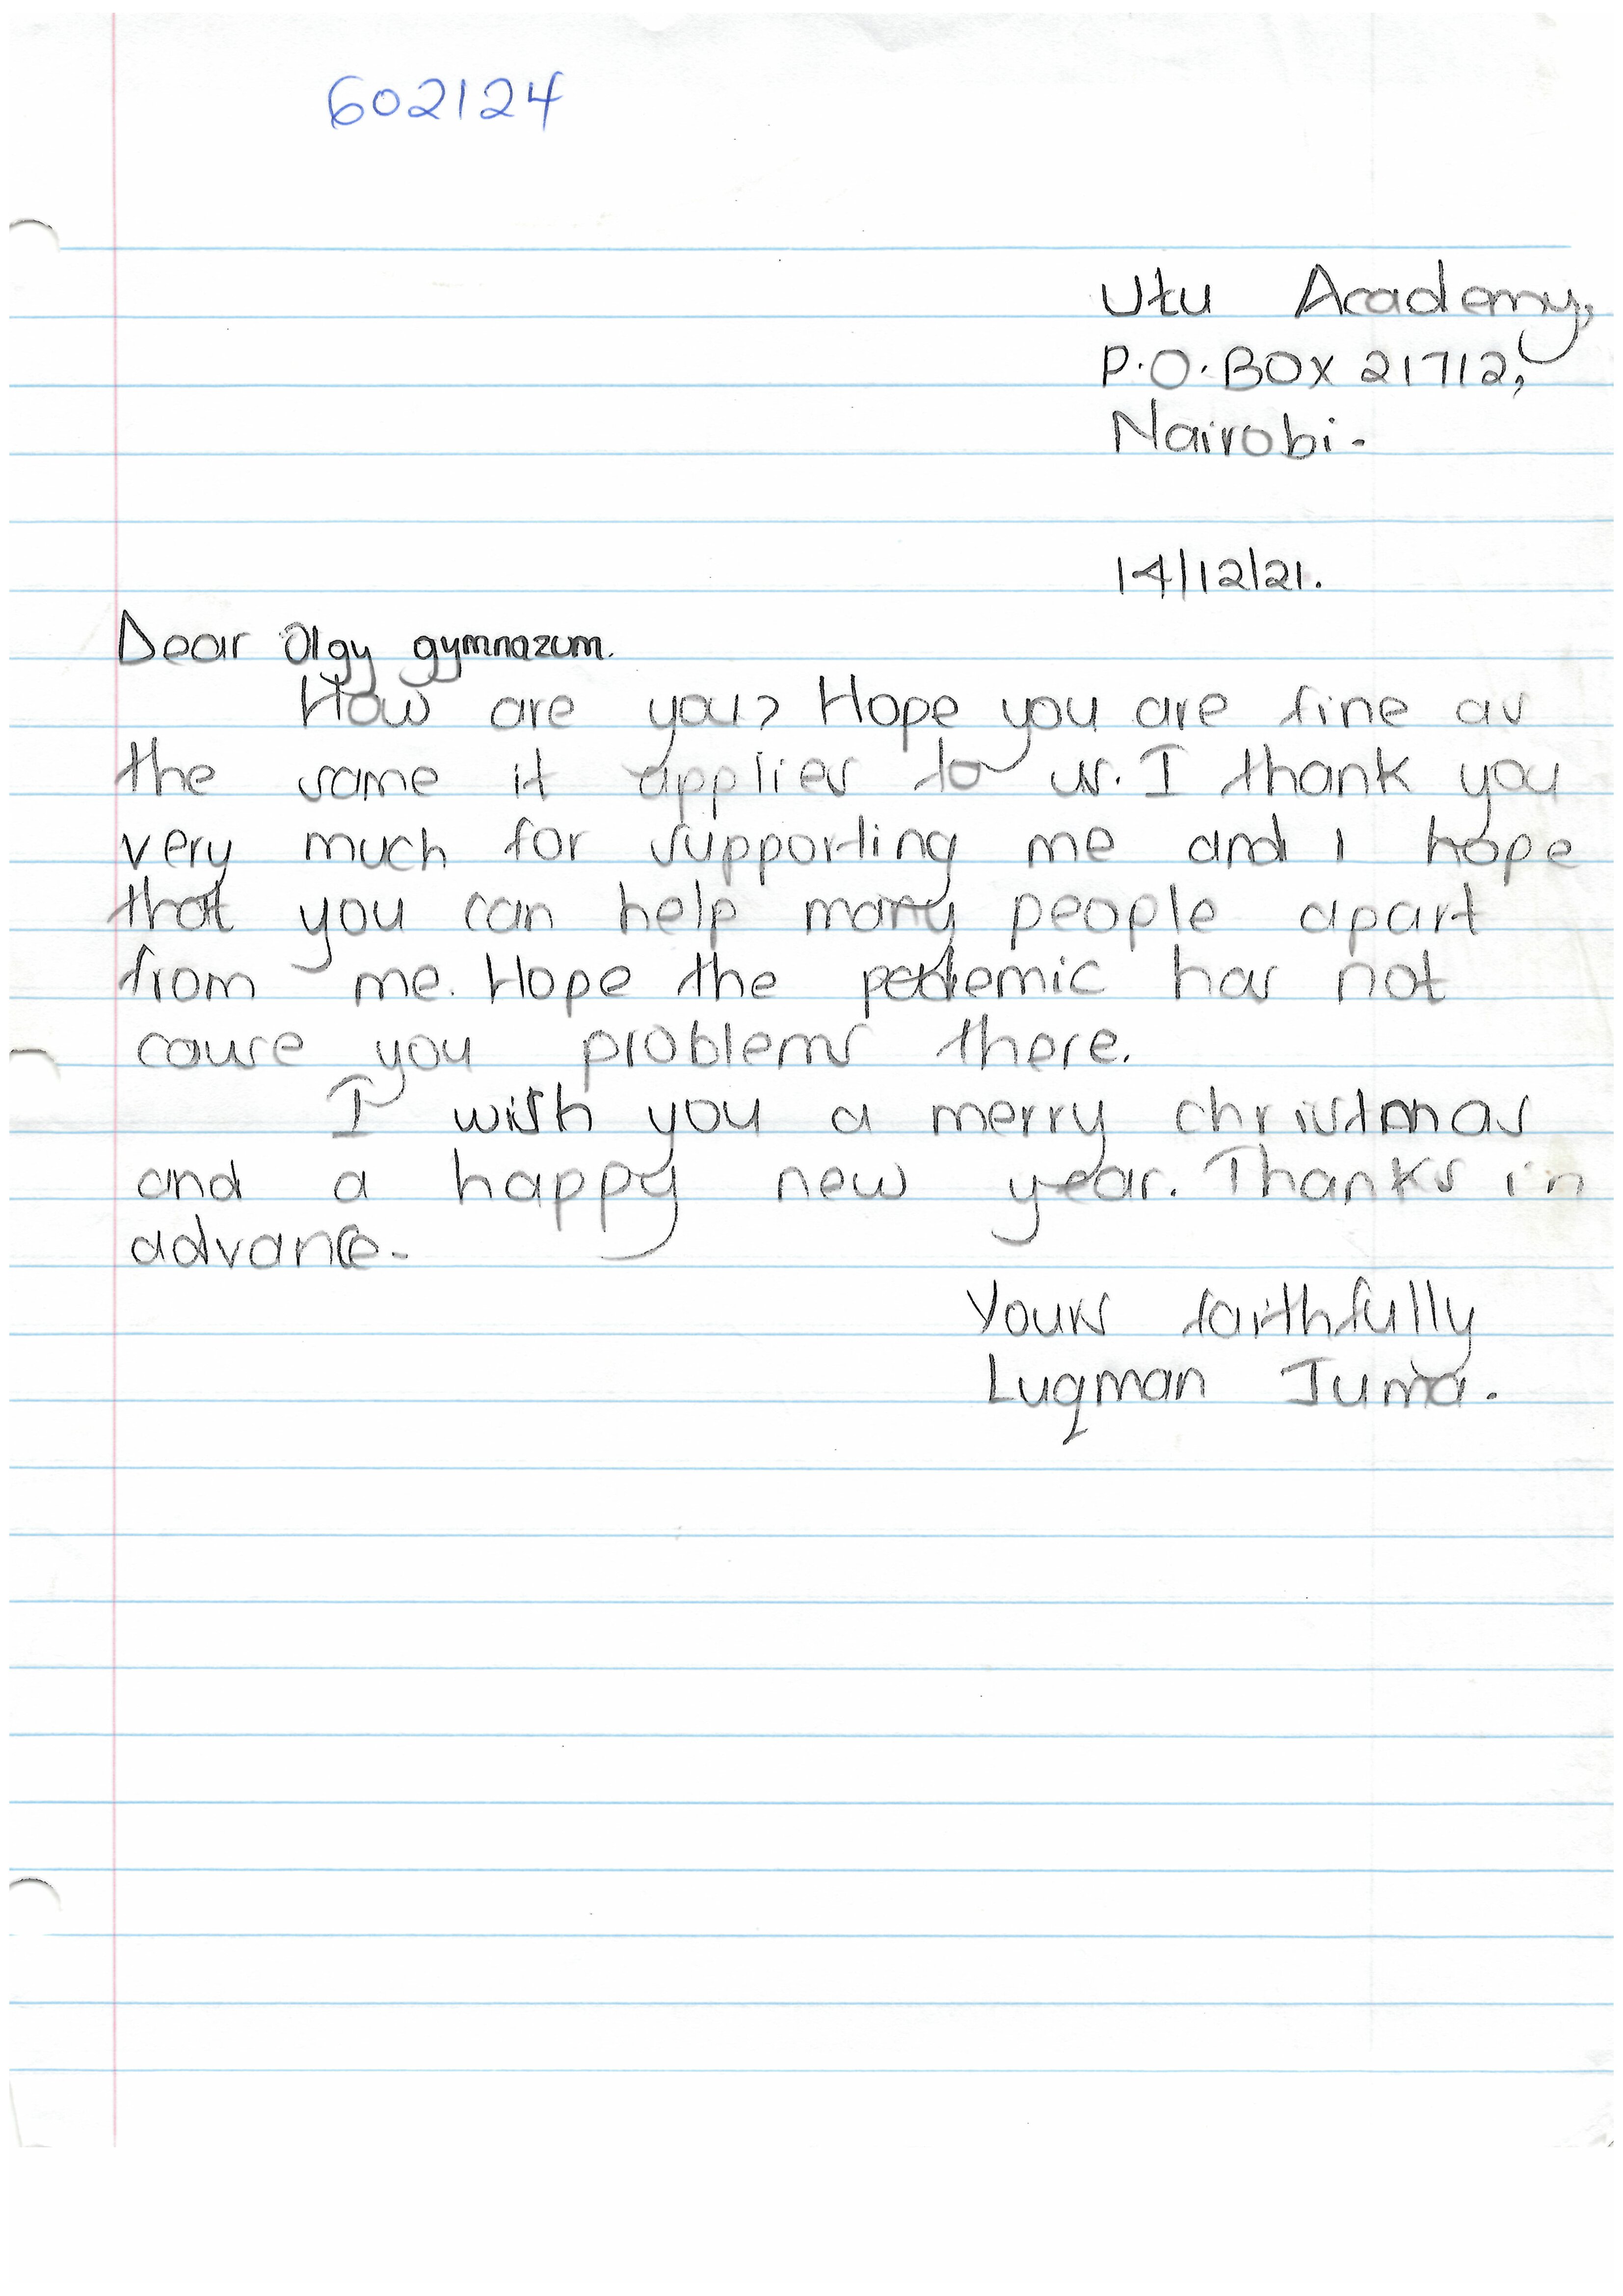 602124
Utu Academy,
P.O.BOX 21712,
Nairobi.
14/12/21.
Dear Olgy gymnazum.
How are you? Hope you are fine as
the same it applies to us. I thank you
very much for supporting me and I hope
that you can help many people apart
from me. Hope the has not
cause you problems there.
I wish you a merry christmas
and a happy new year. Thanks in
advance.
Yours faithfully
Luqman Juma.